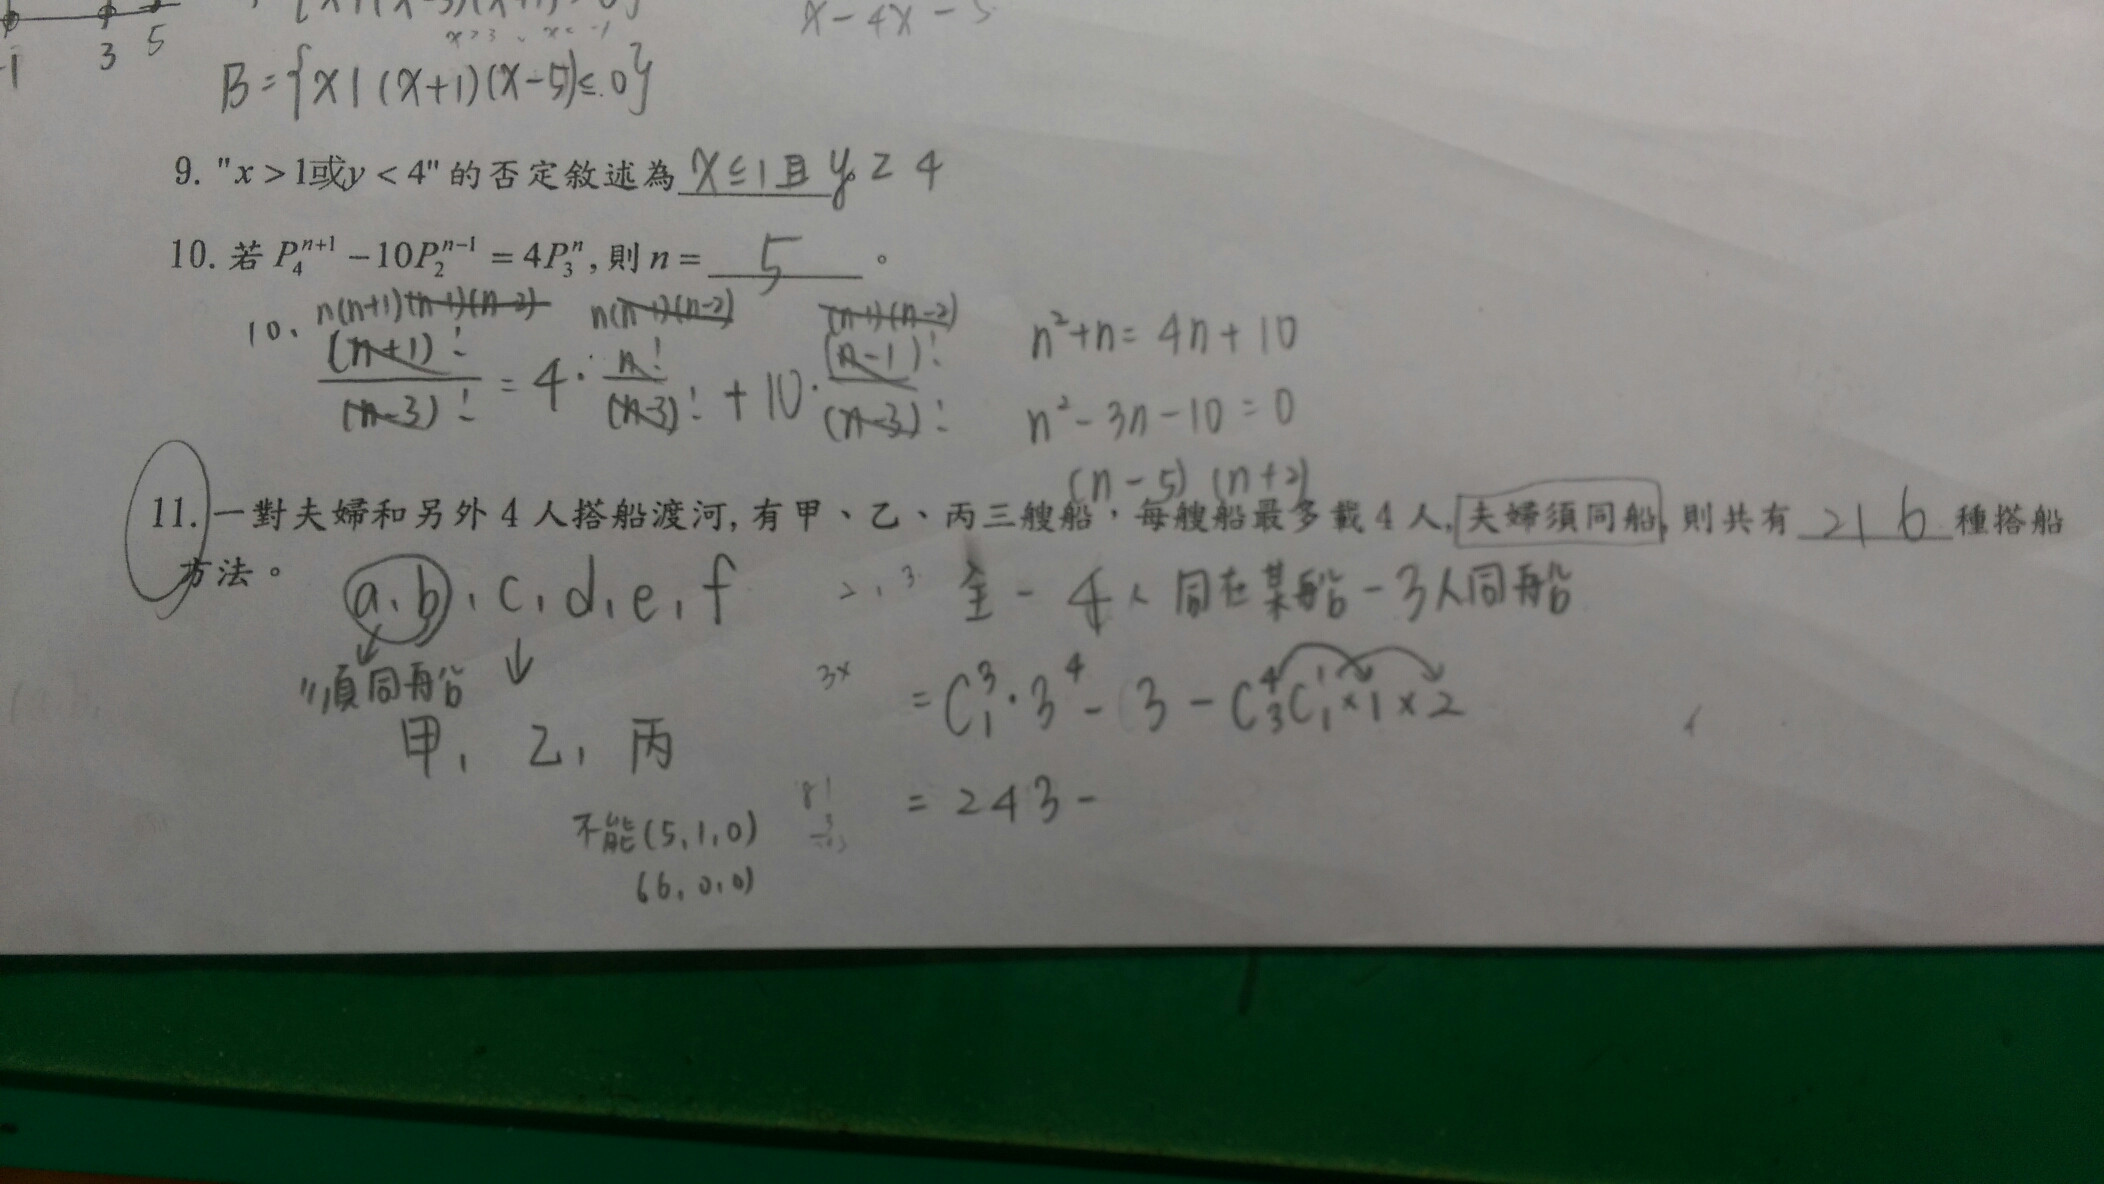 -1 3 5
x-4x-5
B={x|(x+1)(x-5)≤0}
9. "x>1或y<4" 的否定敘述為 x≤1且 y≥4
10. 若 P₄ⁿ⁺¹ −10P₂ⁿ⁻¹ = 4P₃ⁿ, 則 n = 5 。
n(n+1)(n-1)(n-2) n(n-1)(n-2) (n-1)(n-2)
10、 (n+1)!/(n-3)! = 4·n!/(n-3)! + 10·(n-1)!/(n-3)!
n²+n=4n+10
n²-3n-10=0
(n-5)(n+2)
11. 一對夫婦和另外 4 人搭船渡河, 有甲、乙、丙三艘船,每艘船最多載 4 人, 夫婦須同船, 則共有 216 種搭船
方法。
a, b, c, d, e, f
須同船
甲, 乙, 丙
不能(5,1,0)
(6,0,0)
2,3
全-4人同在某船-3人同船
3x
=C₁³·3⁴-3-C₃⁴C₁¹×1×2
81
3
=243-